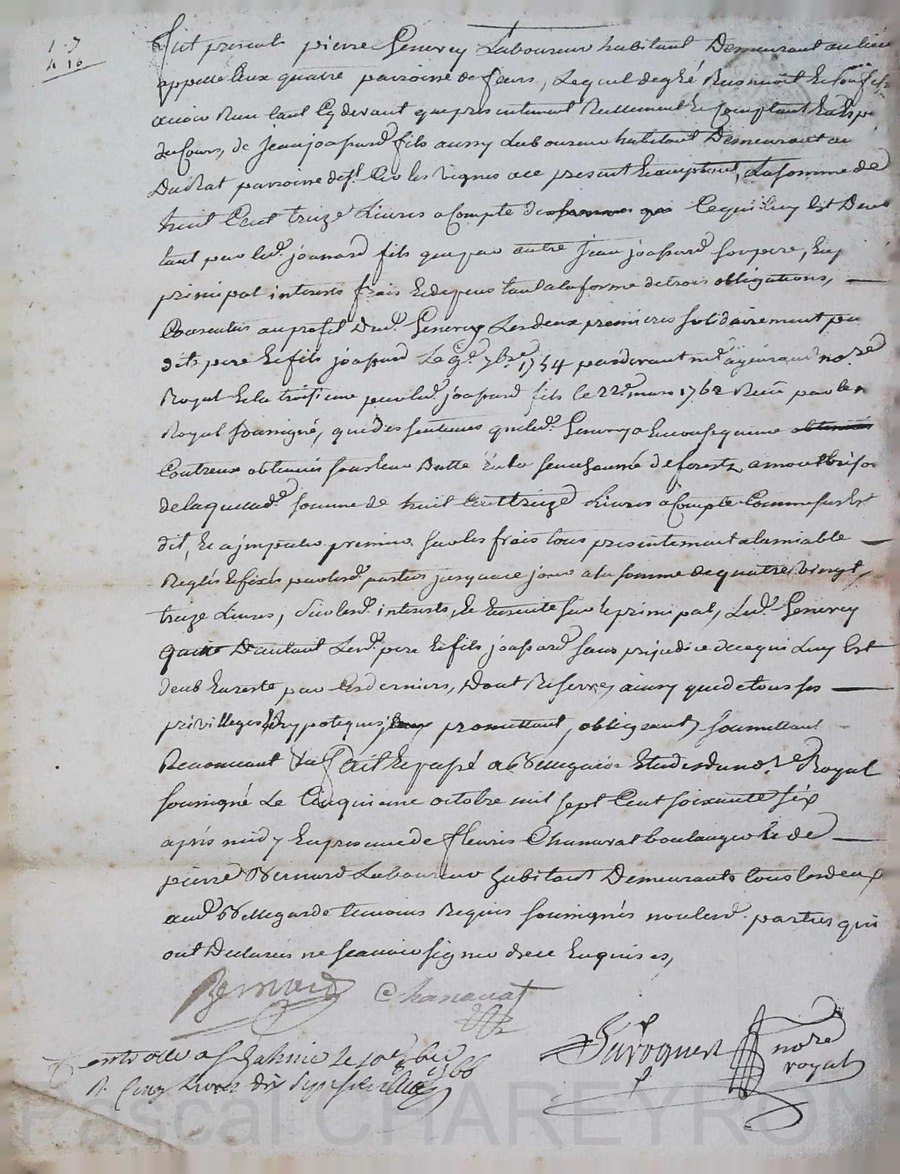 1-7
4 16
fut present pierre Genevey Laboureur habitant Demeurant au lieu
appellé aux quatre parroisse de feurs, Lequel de gré Reconnoit et confesse
avoir Reu tant cy devant que presentement Reellement et Comptant
de Cours, de jean joassard fils aussy Laboureur habitant Demeurant au
parroisse de st. Cir les vignes ace present et acceptant, La somme de
huit Cent treize Livres acompte de ce qui luy est Deub
tant par led. joassard fils que par autre jean joassard son pere, en
principal interests frais et depens tant ala forme de trois obligations,
Consenties au profit Dud. Genevey Les deux premieres solidairement par
dits pere et fils joassard Le 7bre 1754 pardevant me. nore
Royal et la troisieme par led. joassard fils le 22e. mars 1762 Receu par le n
Royal soussigné, que des sentences que led. Genevey a en consequence obtenues
Contreux obtenues senechaussée de forests a montbrison
de laquelle ditte somme de huit Cent treize Livres acompte Comme sus est
dit, et a imputer premier sur les frais tous presentement alamiable
Reglés et fixés par lesd. parties jusqua ce jour a la somme de quatre vingt
treize Livres, sur lesd. interests, et Ensuite sur le principal, Led. Genevey
quitte Dautant Lesd. pere et fils joassard sans prejudice de ce qui Luy Est
deub En reste par Ces derniers, Dont Reserve, ainsy que de tous ses
privilleges et hypoteques, promettant, obligeant, soumettant
Renoncant &a fait et passé a Bellegarde Etude du nore Royal
soussigné Le Cinquieme octobre mil sept Cent soixante six
apres midy En presence de fleuris Chanavat boulanger et de
pierre Bernard Laboureur habitant Demeurants tous les deux
aud. Bellegarde temoins Requis soussignés non lesd. parties qui
ont Declarées ne scavoir signer de ce Enquises,
Bernard Chanavat
nore
royal
Controllé a st Galmier le 10e 8bre 1766
R. Cinq Livres dix
Pascal CHAREYRON